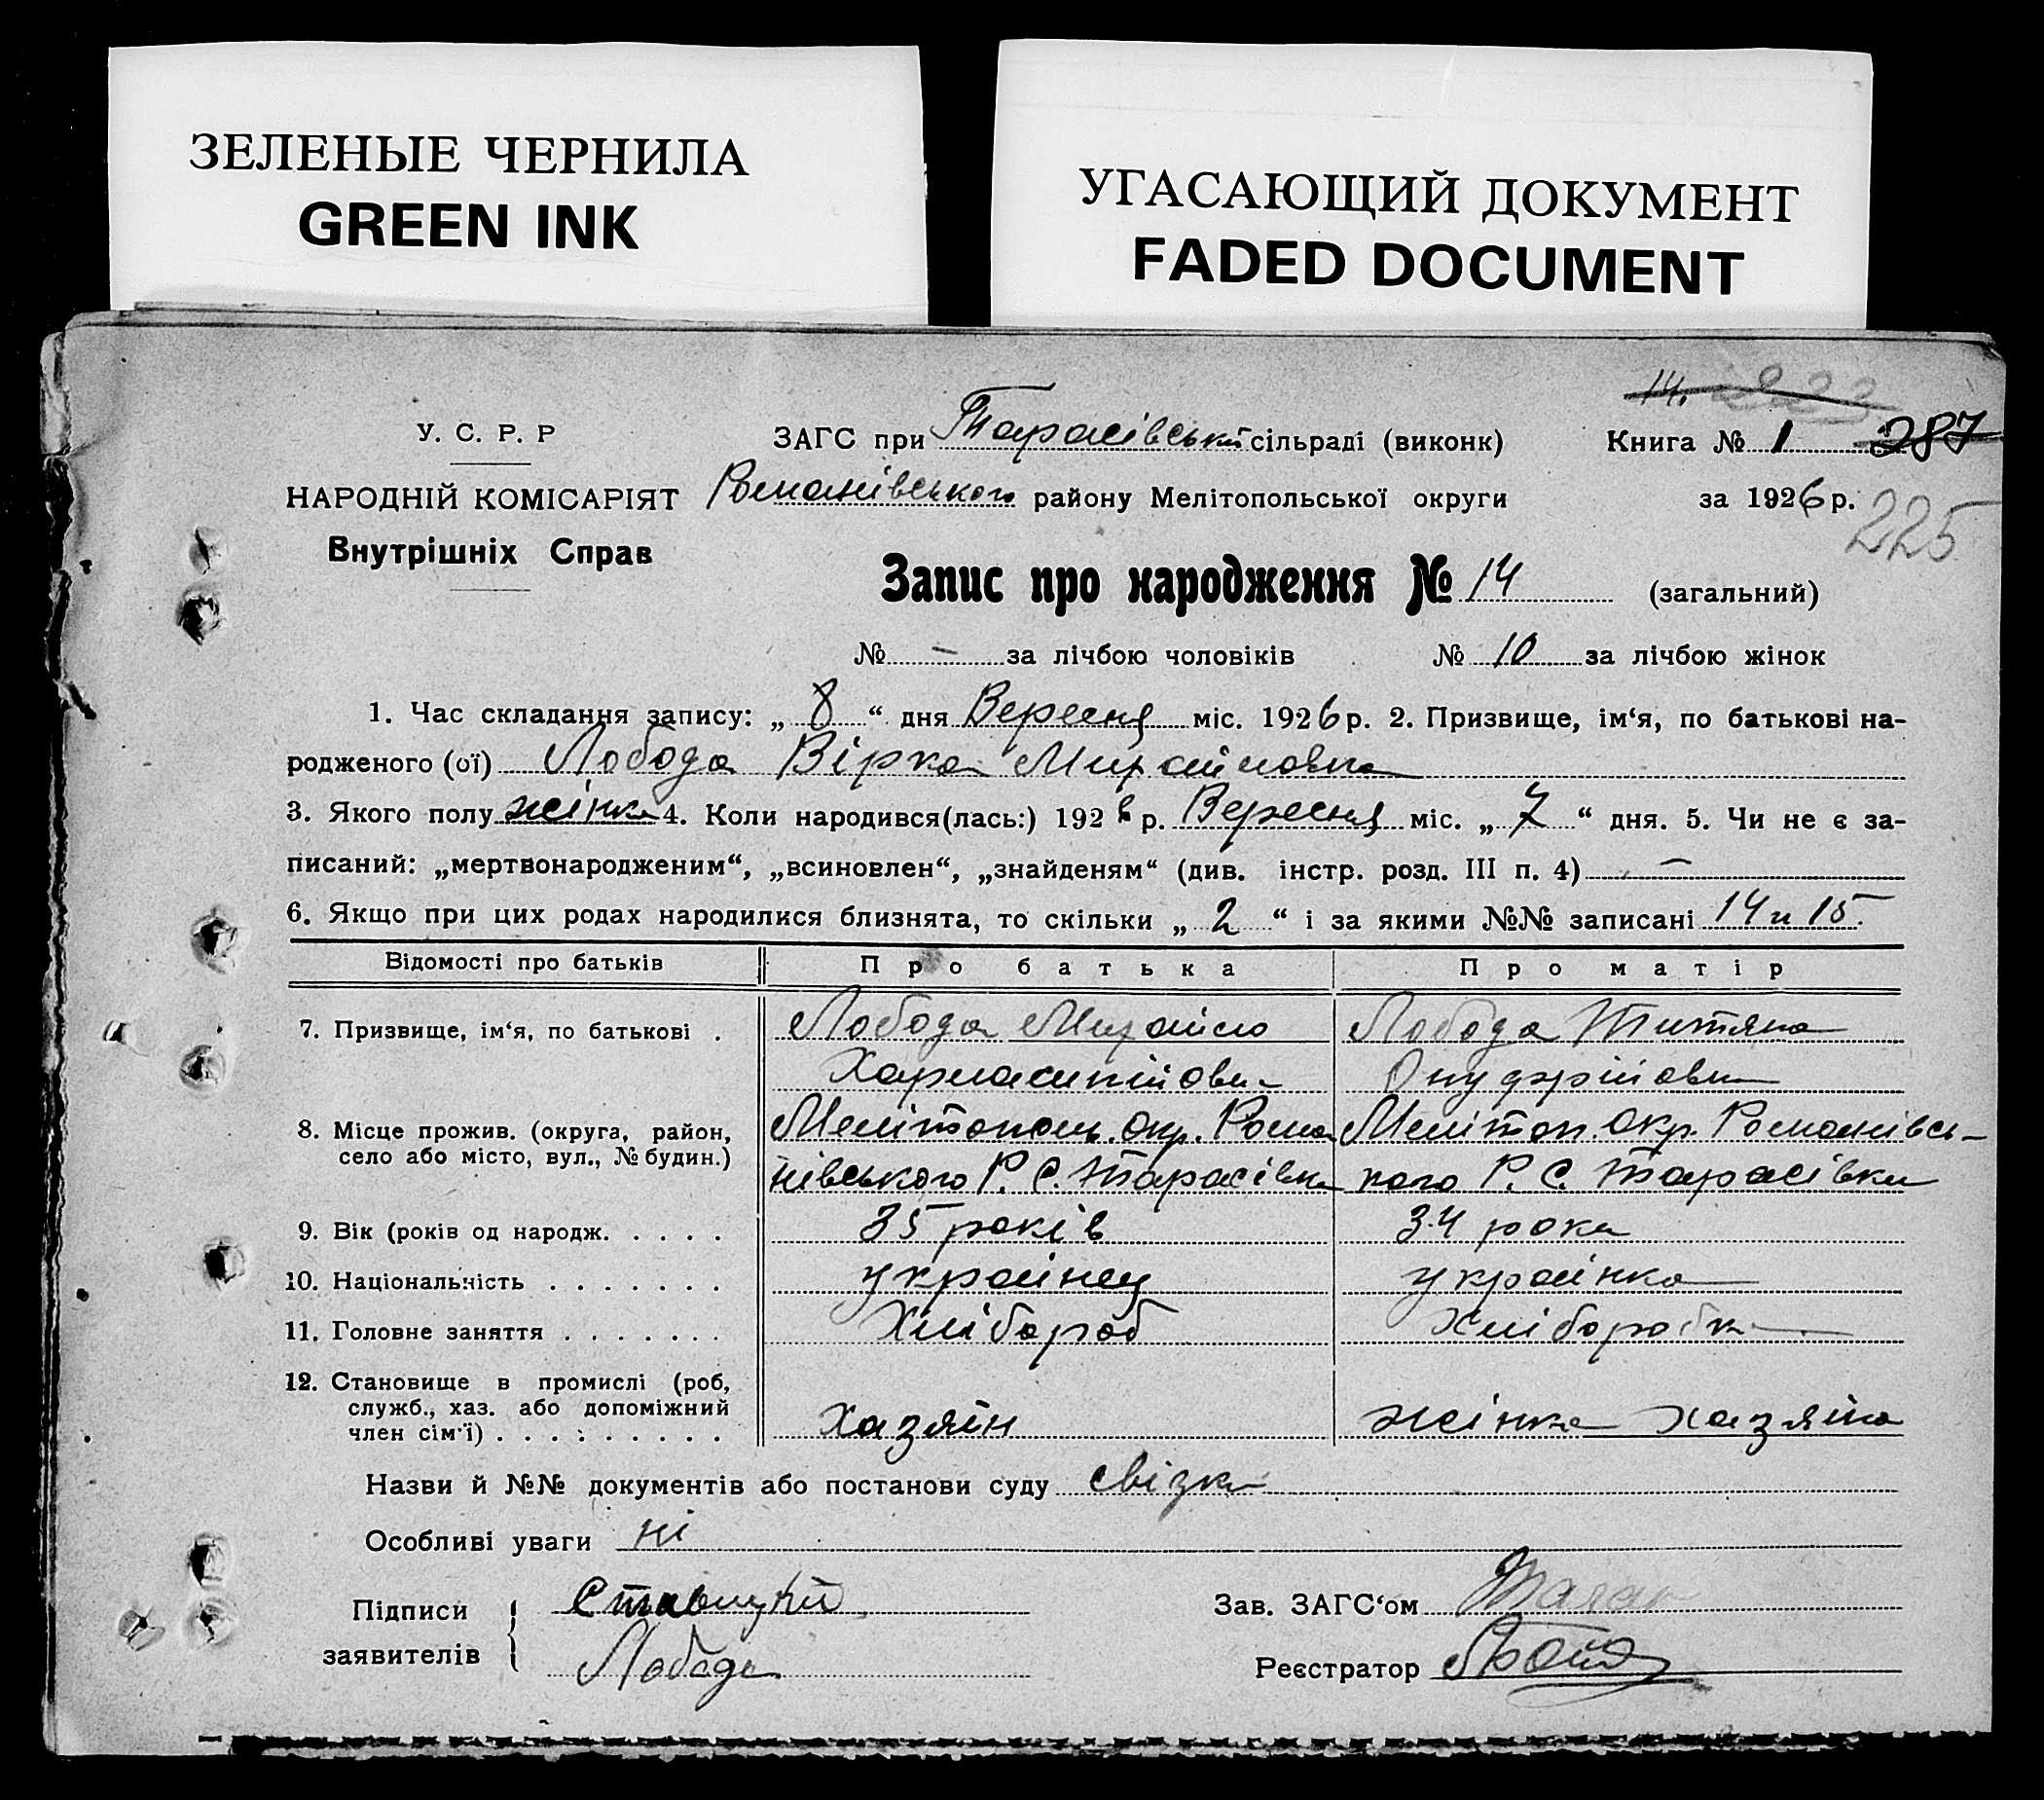 ЗЕЛЕНЫЕ ЧЕРНИЛА
GREEN INK
УГАСАЮЩИЙ ДОКУМЕНТ
FADED DOCUMENT
14. 223
У. С. Р. Р ЗАГС при Тарасівській сільраді (виконк) Книга № 1 287
НАРОДНІЙ КОМІСАРІЯТ Романівського району Мелітопольської округи за 1926 р. 225
Внутрішніх Справ
Запис про народження № 14 (загальний)
№ – за лічбою чоловіків № 10 за лічбою жінок
1. Час складання запису: „ 8 “ дня Вересня міс. 1926 р. 2. Призвище, ім‘я, по батькові на-
родженого (ої) Лобода Вірка Михайловна
3. Якого полу жінка 4. Коли народився(лась:) 1926 р. Вересня міс. „ 7 “ дня. 5. Чи не є за-
писаний: „мертвонародженим“, „всиновлен“, „знайденям“ (див. інстр. розд. III п. 4) –
6. Якщо при цих родах народилися близнята, то скільки „ 2 “ і за якими №№ записані 14 и 15.
Відомості про батьків Про батька Про матір
7. Призвище, ім‘я, по батькові . Лобода Михайло Лобода Титяна
Онуфрійовна
8. Місце прожив. (округа, район, Мелітополь. окр. Рома Мелітоп. окр. Романівсь-
село або місто, вул., № будин.) нівського Р. С. Тарасівка кого Р. С. Тарасівки
9. Вік (років од народж. . . . . 35 років 34 роки
10. Національність . . . . . . . українец українка
11. Головне заняття . . . . . . . Хлібороб хліборобка
12. Становище в промислі (роб,
служб., хаз. або допоміжний
член сім‘ї) . . . . . . . . . хазяїн жінка хазяїна
Назви й №№ документів або постанови суду свізка
Особливі уваги ні
Підписи Зав. ЗАГС‘ом
заявителів Лобода Реєстратор